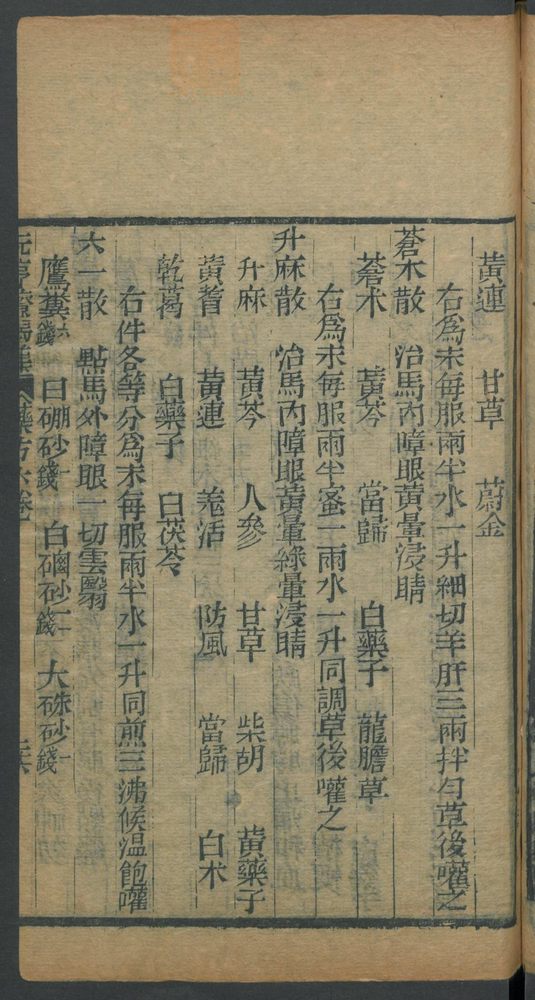 黃連　甘草　蔚金
右爲末每服兩半水一升細切羊肝三兩拌勻草後嚾之
蒼术散　治馬內障眼黃暈浸睛
蒼术　黃芩　當歸　白藥子　龍膽草
右爲末每服兩半蜜一兩水一升同調草後嚾之
升麻散　治馬內障眼黃暈綠暈浸睛
升麻　黃芩　人參　甘草　柴胡　黃藥子
黃耆　黃連　羗活　防風　當歸　白术
乾葛　白藥子　白茯苓
右件各等分爲末每服兩半水一升同煎三沸候温飽嚾
六一散　㸃馬外障眼一切雲翳
鷹糞六錢　白硼砂一錢　白硇砂二錢　大硃砂一錢
元亨療馬集　藥方六卷